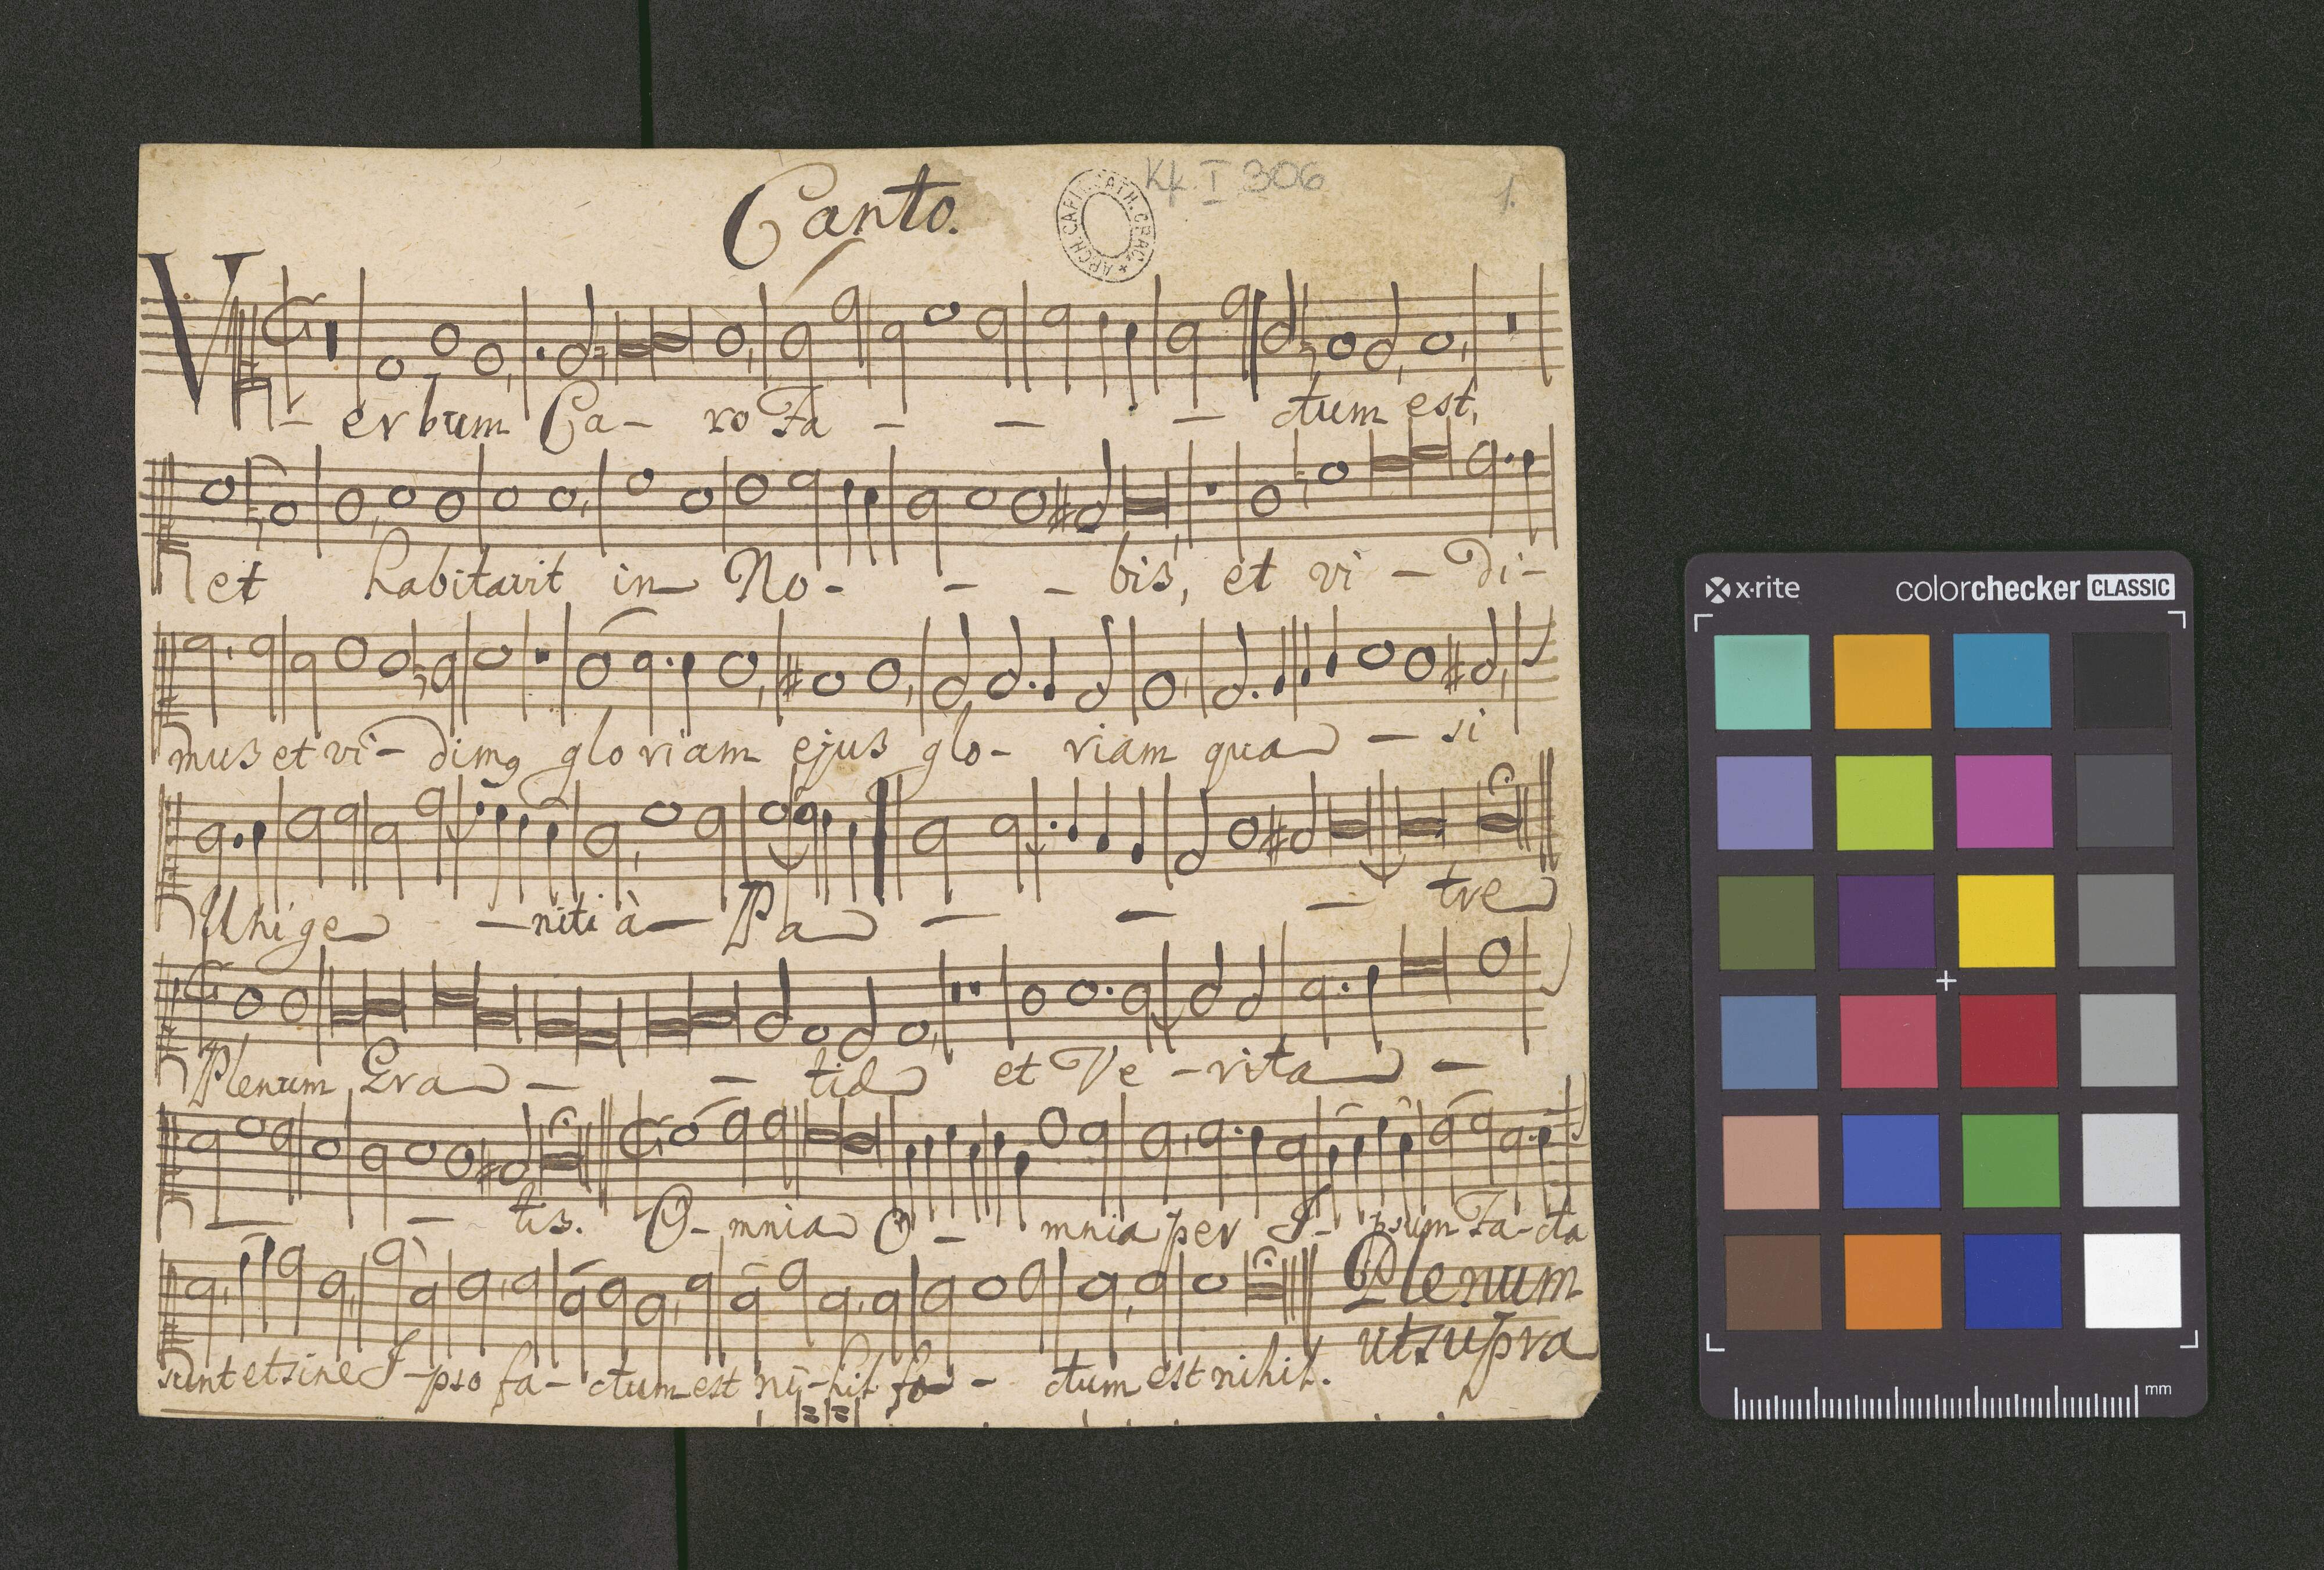 Canto.
Kk. I 306
1.
ARCH. CAPIT. CATH. CRAC.
Verbum Ca- ro Fa - - - ctum est,
et habitavit in No- - - bis, et vi - di-
mus et vi- dimq gloriam ejus glo- riam qua - si
Unige - niti à - Pa - - - tre
Plenum Gra - - tiæ et Ve - rita -
- - tis. O- mnia O - mnia per I- psum Fa- cta
sunt et sine I- pso fa- ctum est ni- hil fa - ctum est nihil.
Plenum
ut supra
x·rite
colorchecker CLASSIC
mm